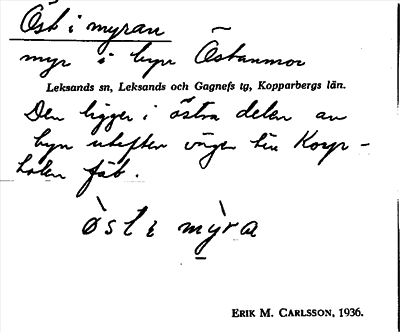 Öst i myran
myr i byn Östanmor
Leksands sn, Leksands och Gagnefs tg, Kopparbergs län.
Den ligger i östra delen av
byn utefter vägen till Korp-
holen fäb.
ò̀st i mỳra
ERIK M. CARLSSON, 1936.